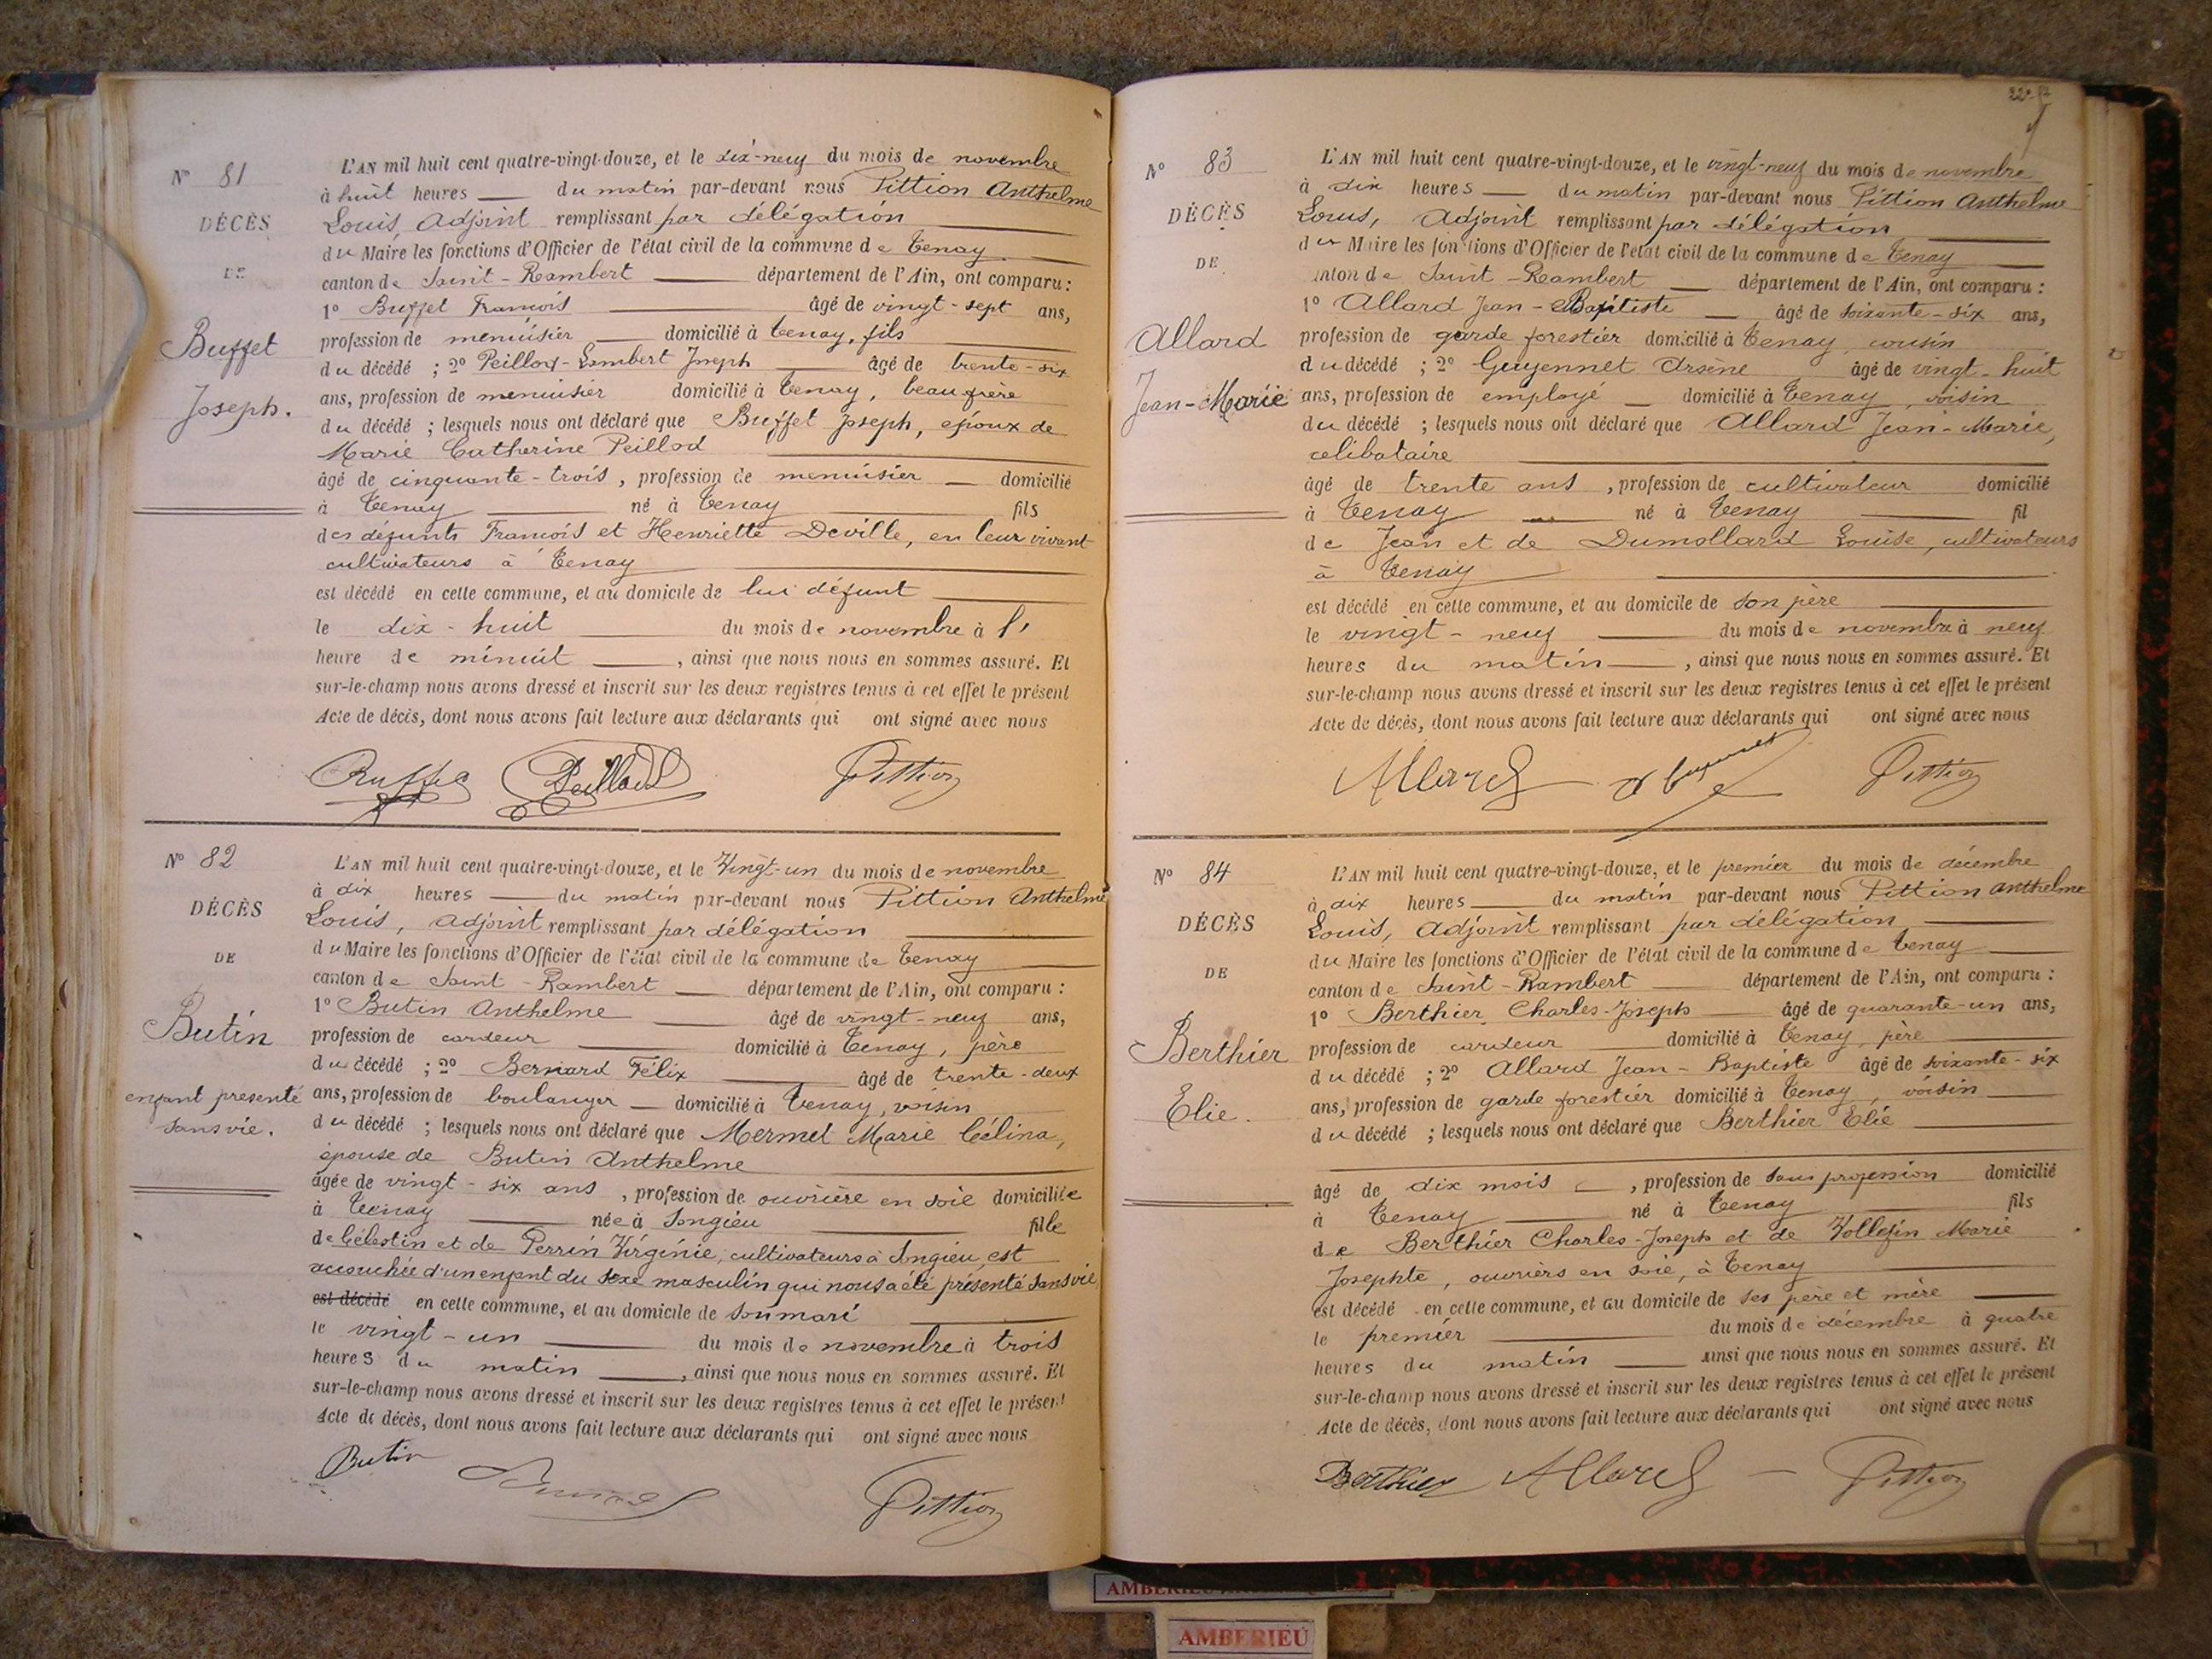 N° 81
DÉCÈS
DE
Buffet
Joseph.
L'AN mil huit cent quatre-vingt-douze, et le dix-neuf du mois de novembre
à huit heures du matin par-devant nous Pittion Anthelme
Louis, adjoint remplissant par délégation
du Maire les fonctions d'Officier de l'état civil de la commune de Tenay
canton de Saint-Rambert département de l'Ain, ont comparu :
1° Buffet François âgé de vingt-sept ans,
profession de menuisier domicilié à Tenay, fils
du décédé ; 2° Peillod-Lambert Joseph âgé de trente-six
ans, profession de menuisier domicilié à Tenay, beau frère
du décédé ; lesquels nous ont déclaré que Buffet Joseph, époux de
Marie Catherine Peillod
âgé de cinquante-trois, profession de menuisier domicilié
à Tenay né à Tenay fils
des défunts François et Henriette Deville, en leur vivant
cultivateurs à Tenay
est décédé en cette commune, et au domicile de lui défunt
le dix-huit du mois de novembre à l'
heure de minuit, ainsi que nous nous en sommes assuré. Et
sur-le-champ nous avons dressé et inscrit sur les deux registres tenus à cet effet le présent
Acte de décès, dont nous avons fait lecture aux déclarants qui ont signé avec nous
Buffet Peillod Pittion
N° 82
DÉCÈS
DE
Butin
enfant présenté
sans vie.
L'AN mil huit cent quatre-vingt-douze, et le Vingt-un du mois de novembre
à dix heures du matin par-devant nous Pittion Anthelme
Louis, adjoint remplissant par délégation
du Maire les fonctions d'Officier de l'état civil de la commune de Tenay
canton de Saint-Rambert département de l'Ain, ont comparu :
1° Butin Anthelme âgé de vingt-neuf ans,
profession de cardeur domicilié à Tenay, père
du décédé ; 2° Bernard Félix âgé de trente-deux
ans, profession de boulanger domicilié à Tenay, voisin
du décédé ; lesquels nous ont déclaré que Mermet Marie Célina,
épouse de Butin Anthelme
âgée de vingt-six ans, profession de ouvrière en soie domiciliée
à Tenay née à Songieu fille
de Célestin et de Perrin Virginie, cultivateurs à Songieu, est
accouchée d'un enfant du sexe masculin qui nous a été présenté sans vie
est décédé en cette commune, et au domicile de son mari
le vingt-un du mois de novembre à trois
heures du matin, ainsi que nous nous en sommes assuré. Et
sur-le-champ nous avons dressé et inscrit sur les deux registres tenus à cet effet le présent
Acte de décès, dont nous avons fait lecture aux déclarants qui ont signé avec nous
Butin Pittion
N° 83
DÉCÈS
DE
Allard
Jean-Marie
L'AN mil huit cent quatre-vingt-douze, et le vingt-neuf du mois de novembre
à dix heures du matin par-devant nous Pittion Anthelme
Louis, adjoint remplissant par délégation
du Maire les fonctions d'Officier de l'état civil de la commune de Tenay
canton de Saint-Rambert département de l'Ain, ont comparu :
1° Allard Jean-Baptiste âgé de soixante-six ans,
profession de garde forestier domicilié à Tenay, cousin
du décédé ; 2° Guyennet Arsène âgé de vingt-huit
ans, profession de employé domicilié à Tenay, voisin
du décédé ; lesquels nous ont déclaré que Allard Jean-Marie,
celibataire
âgé de trente ans, profession de cultivateur domicilié
à Tenay né à Tenay fil
de Jean et de Dumollard Louise, cultivateurs
à Tenay
est décédé en cette commune, et au domicile de son père
le vingt-neuf du mois de novembre à neuf
heures du matin, ainsi que nous nous en sommes assuré. Et
sur-le-champ nous avons dressé et inscrit sur les deux registres tenus à cet effet le présent
Acte de décès, dont nous avons fait lecture aux déclarants qui ont signé avec nous
Allard Pittion
N° 84
DÉCÈS
DE
Berthier
Elie.
L'AN mil huit cent quatre-vingt-douze, et le premier du mois de décembre
à dix heures du matin par-devant nous Pittion Anthelme
Louis, adjoint remplissant par délégation
du Maire les fonctions d'Officier de l'état civil de la commune de Tenay
canton de Saint-Rambert département de l'Ain, ont comparu :
1° Berthier Charles-Joseph âgé de quarante-un ans,
profession de cardeur domicilié à Tenay, père
du décédé ; 2° Allard Jean-Baptiste âgé de soixante-six
ans, profession de garde forestier domicilié à Tenay, voisin
du décédé ; lesquels nous ont déclaré que Berthier Elie
âgé de dix mois, profession de sans profession domicilié
à Tenay né à Tenay fils
de Berthier Charles-Joseph et de Marie
Josephte, ouvriers en soie, à Tenay
est décédé en cette commune, et au domicile de ses père et mère
le premier du mois de décembre à quatre
heures du matin ainsi que nous nous en sommes assuré. Et
sur-le-champ nous avons dressé et inscrit sur les deux registres tenus à cet effet le présent
Acte de décès, dont nous avons fait lecture aux déclarants qui ont signé avec nous
Berthier Allard Pittion
AMBERIEU